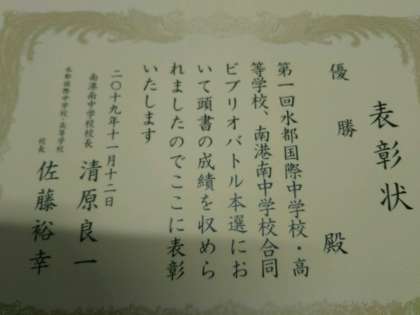 表彰状
優勝 殿
第一回水都国際中学校・高
等学校、南港南中学校合同
ビブリオバトル本選にお
いて頭書の成績を収めら
れましたのでここに表彰
いたします
二〇十九年十一月十二日
南港南中学校校長 清原良一
水都国際中学校・高等学校
校長 佐藤裕幸